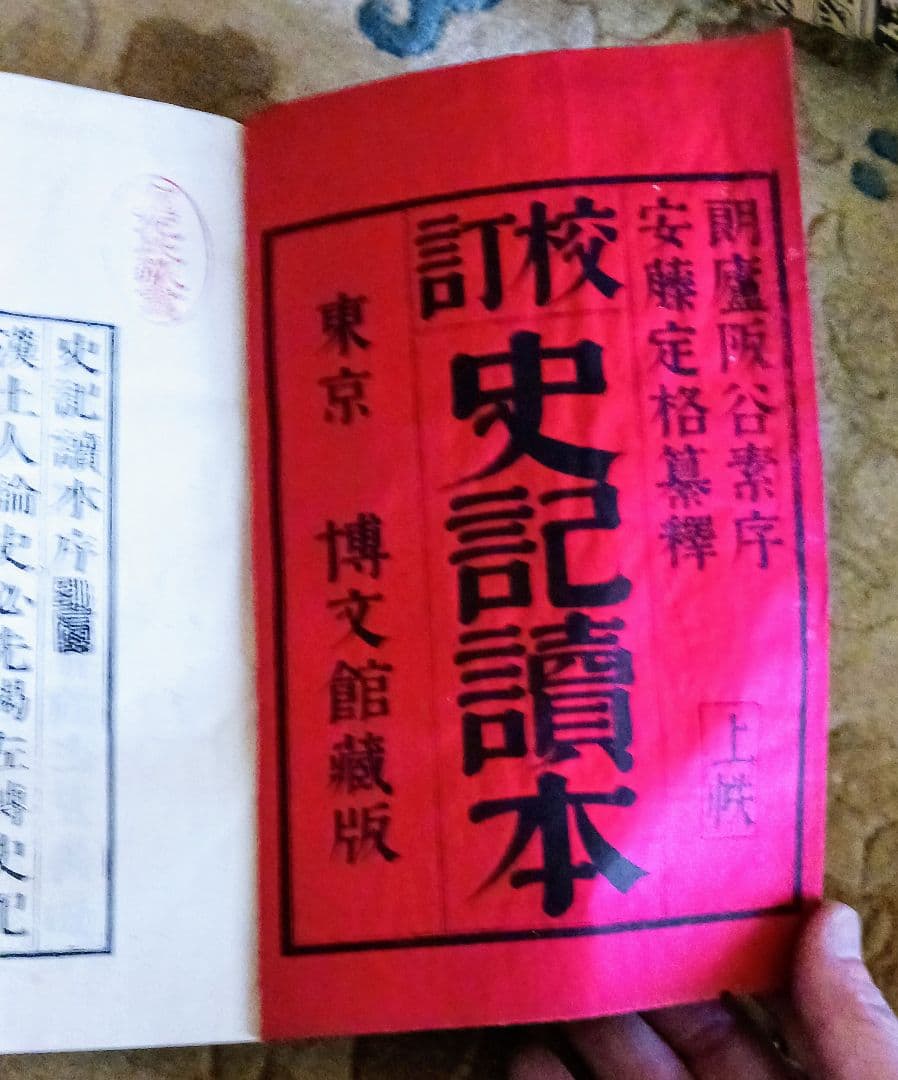 朗廬阪谷素序
安藤定格纂釋
上帙
校訂
史記讀本
東京 博文館藏版
史記讀本序
漢土人論史必先左傳史記